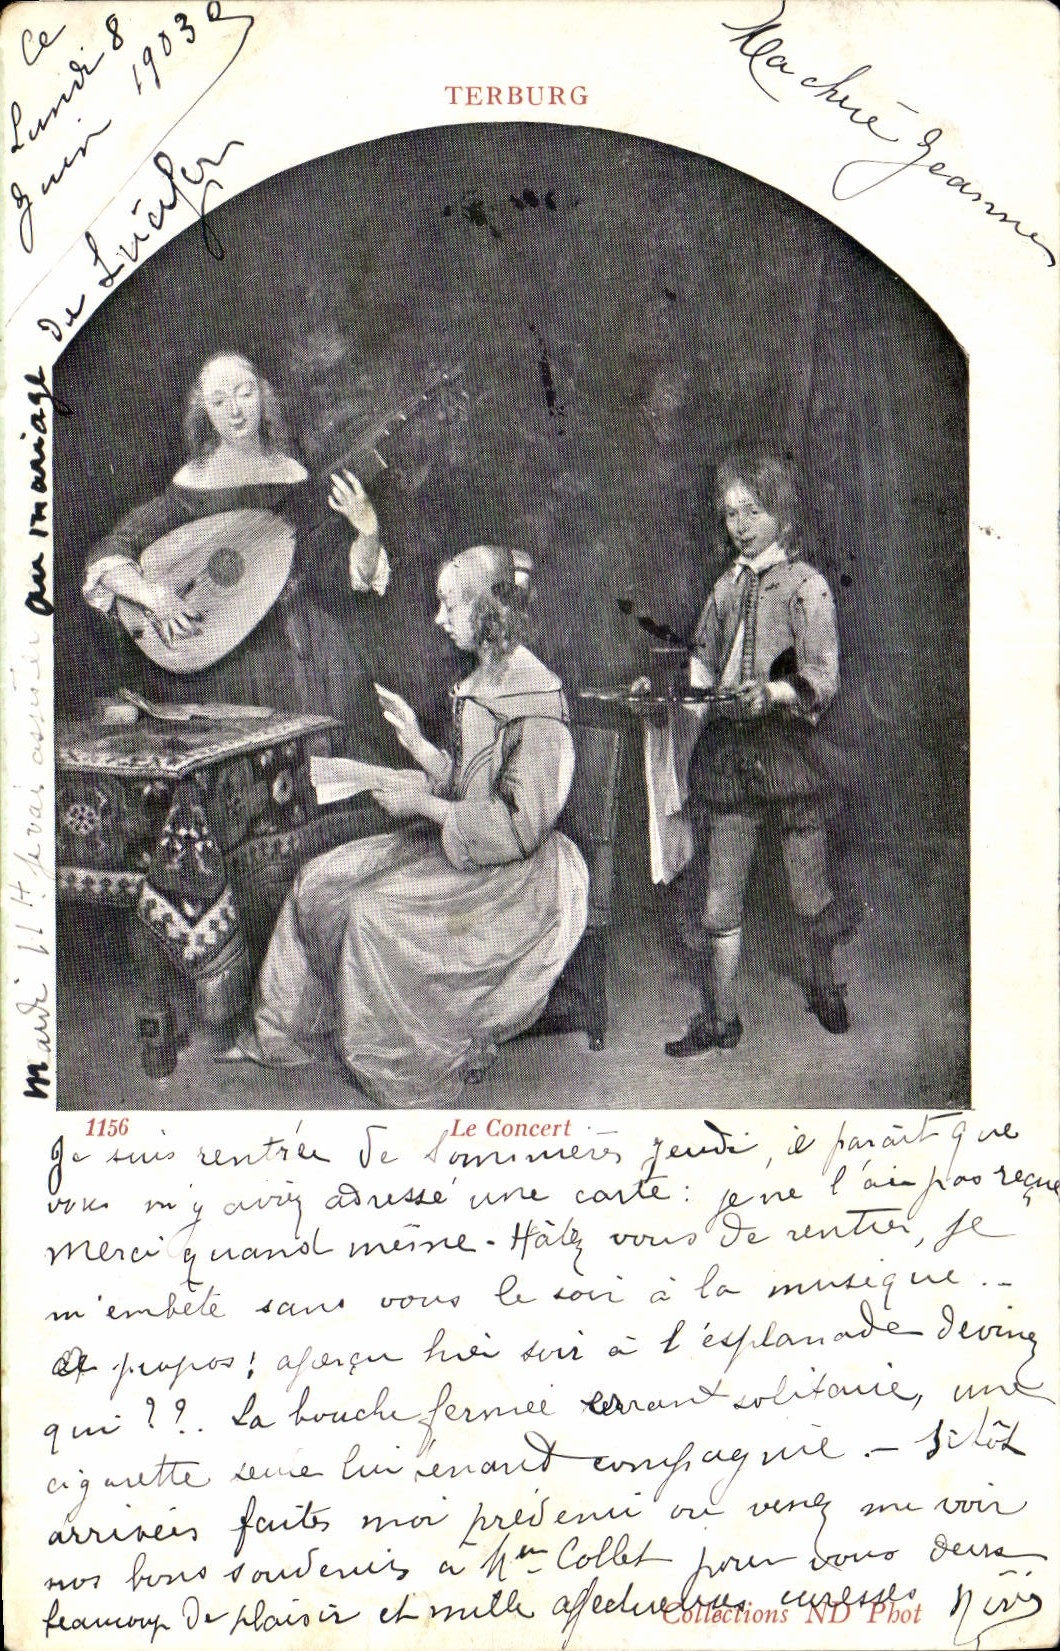 Ce
Lundi 8
Juin 1903
Ma chère Jeanne
TERBURG
Mardi 11H je vais assister au mariage de
1156
Le Concert
Je suis rentrée de Sommières jeudi, il parait que
vous m'y aviez adressé une carte : je ne l'ai pas reçue
Merci quand même - Hâtez vous de rentrer, je
m'embête sans vous le soir à la musique ..
A propos ! aperçu hier soir à l'esplanade devinez
qui ??. La bouche fermée errant solitaire, une
cigarette seule lui tenant compagnie. - Sitôt
arrivées faites moi prévenir ou venez me voir
nos bons souvenirs à Mme Collet pour vous deux
beaucoup de plaisir et mille affectueuses caresses
Collections ND Phot